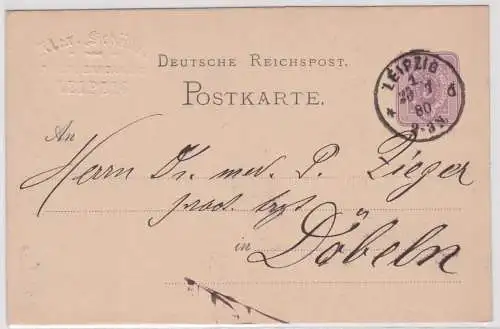 LEIPZIG
DEUTSCHE REICHSPOST.
POSTKARTE.
LEIPZIG
1
80
6
An
Herrn Dr. med. P. Zieger
pract. Arzt
in
Döbeln